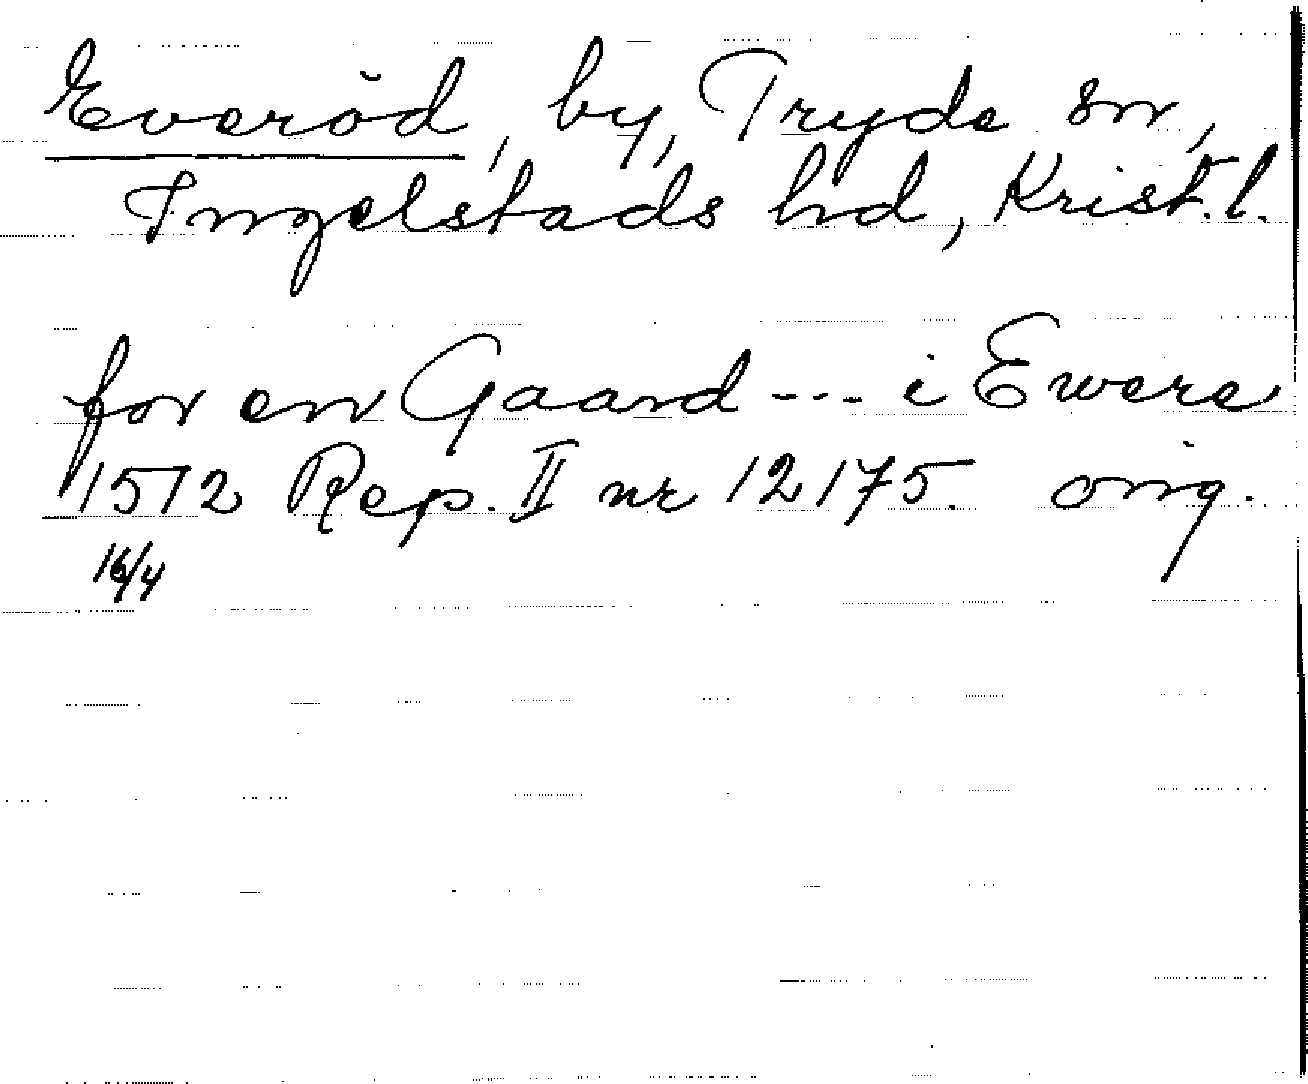 Everöd, by, Tryde sn,
Ingelstads hd, Krist. l.
for en Gaard --- i Ewere
1512 Rep. II nr 12175. orig.
16/4